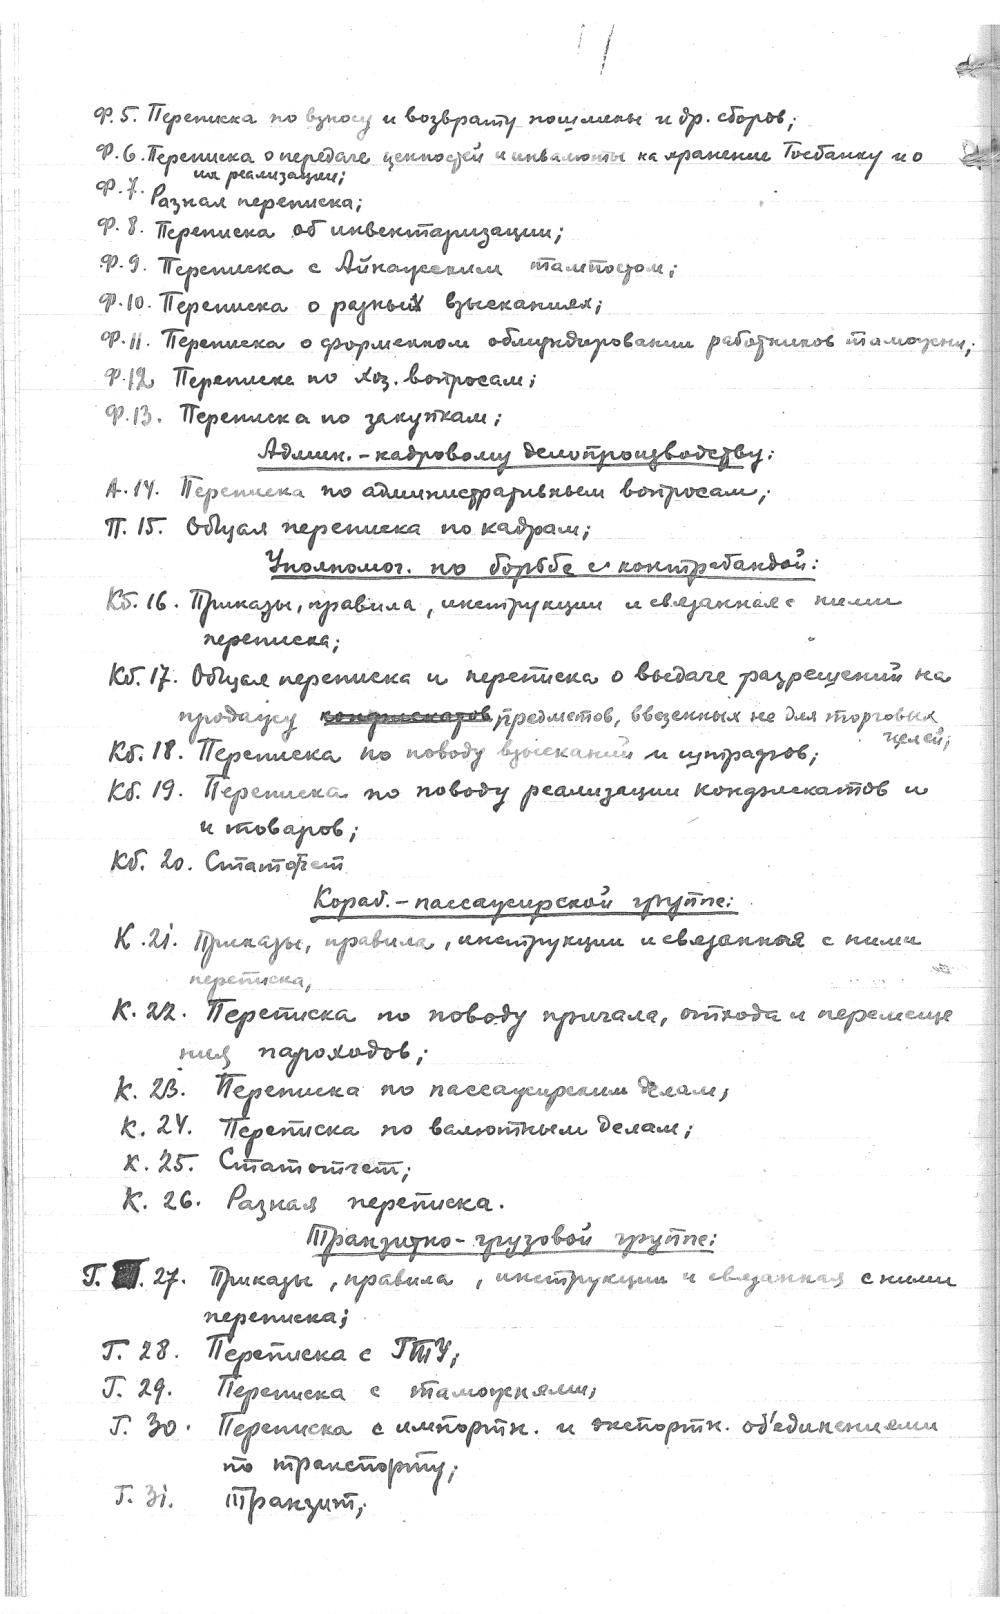 Ф.5. Переписка по взносу и возврату пошлины и др. сборов;
Ф.6. Переписка о передаче ценностей и инвалюты на хранение Госбанку и о
их реализации;
Ф.7. Разная переписка;
Ф.8. Переписка об инвентаризации;
Ф.9. Переписка с Айнажским тампостом;
Ф.10. Переписка о разных взысканиях;
Ф.11. Переписка о форменном обмундировании работников таможни;
Ф.12 Переписке по хоз. вопросам;
Ф.13. Переписка по закупкам;
Админ.-кадровому делопроизводству:
А.14. Переписка по административным вопросам;
П.15. Общая переписка по кадрам;
Уполномог. по борьбе с контрабандой:
Кб.16. Приказы, правила, инструкции и связанная с ними
переписка;
Кб.17. Общая переписка и переписка о выдаче разрешений на
продажу конфискатов предметов, ввезенных не для торговых
целей;
Кб.18. Переписка по поводу взысканий и штрафов;
Кб.19. Переписка по поводу реализации конфискатов и
и товаров;
Кб.20. Статотчет
Кораб.-пассажирской группе:
К.21. Приказы, правила, инструкции и связанная с ними
переписка,
К.22. Переписка по поводу причала, отхода и перемеще
ния пароходов;
К.23. Переписка по пассажирским делам;
К.24. Переписка по валютным делам;
К.25. Статотчет;
К.26. Разная переписка.
Транзитно-грузовой группе:
Г. 27. Приказы, правила, инструкции и связанная с ними
переписка;
Г.28. Переписка с ГТУ;
Г.29. Переписка с таможнями;
Г.30. Переписка с импортн. и экспортн. об'единениями
по транспорту;
Г.31. Транзит;